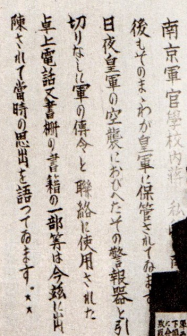 南京軍官學校内蒋
後もそのまゝわが皇軍に保管されてゐます
日夜皇軍の空襲におびへたその警報器と引
切りなしに軍の傳令と聯絡に使用された
卓上電話又書棚の書籍の一部等は今玆に出
陳されて當時の思出を語つてゐます。★★